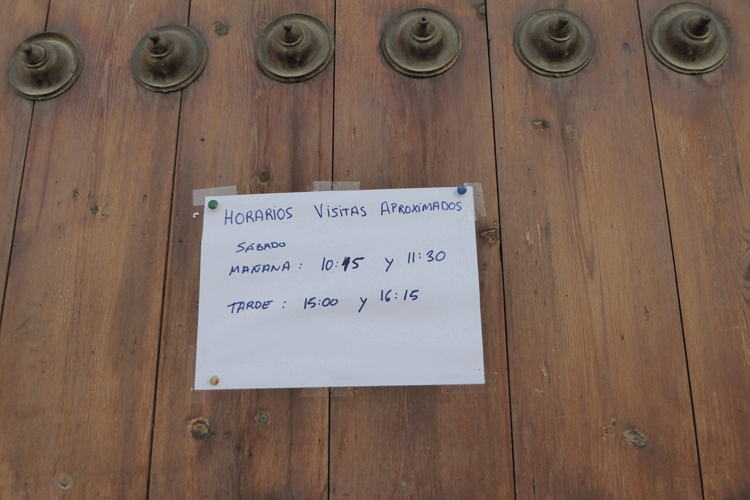 HORARIOS VISITAS APROXIMADOS
SÁBADO
MAÑANA : 10:45 y 11:30
TARDE : 15:00 y 16:15